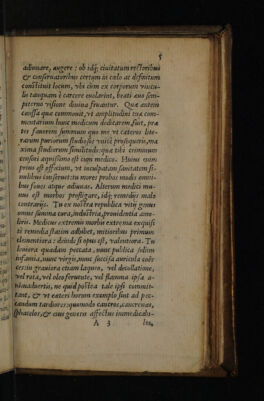 5
adiuuare, augere: ob idq́; ciuitatum rectoribus
& conseruatoribus certum in cœlo ac definitum
constitui locum, vbi cùm ex corporum vinculis
tanquam è carcere euolârint, beati æuo sempiterno
visione diuina fruantur. Quæ autem
caussa
commentarium hunc medicum dedicarem sunt,
literarum puriorum studiosos
maxima studiorum similitudo: quæ tibi criminum
censori æquissimo est cum medico. Huius enim
prius est officium, vt inculpatam sanitatem similibus
conseruet: tu mores probos modis omnibus
adiuuas. Alterum medici munus
est morbos profligare, idq́; remedijs malo
contrarijs. Tu ex nostra republica vitij genus
omne summa cura, industria, prouidentia
Medicus extremis morbis extrema exquisitè
remedia statim adhibet, mitioribus primùm
clementiora: deinde si opus est, valentiora. Tu
leuiora quædam peccata, nunc publica
infamia, nunc virgis, nunc succisa auricula coërces:
in grauiora etiam laqueo, vel decollatione,
vel rota, vel oleo feruente, vel flamma ipsa animaduertis,
ne quid postea tale ipsi committant,
& vt cæteri horum exemplo sint ad peccandum
tardiores: quomodo cancros, cancrenas,
sphacelos, & eius generis affectus immedicabi-
A 3 les,